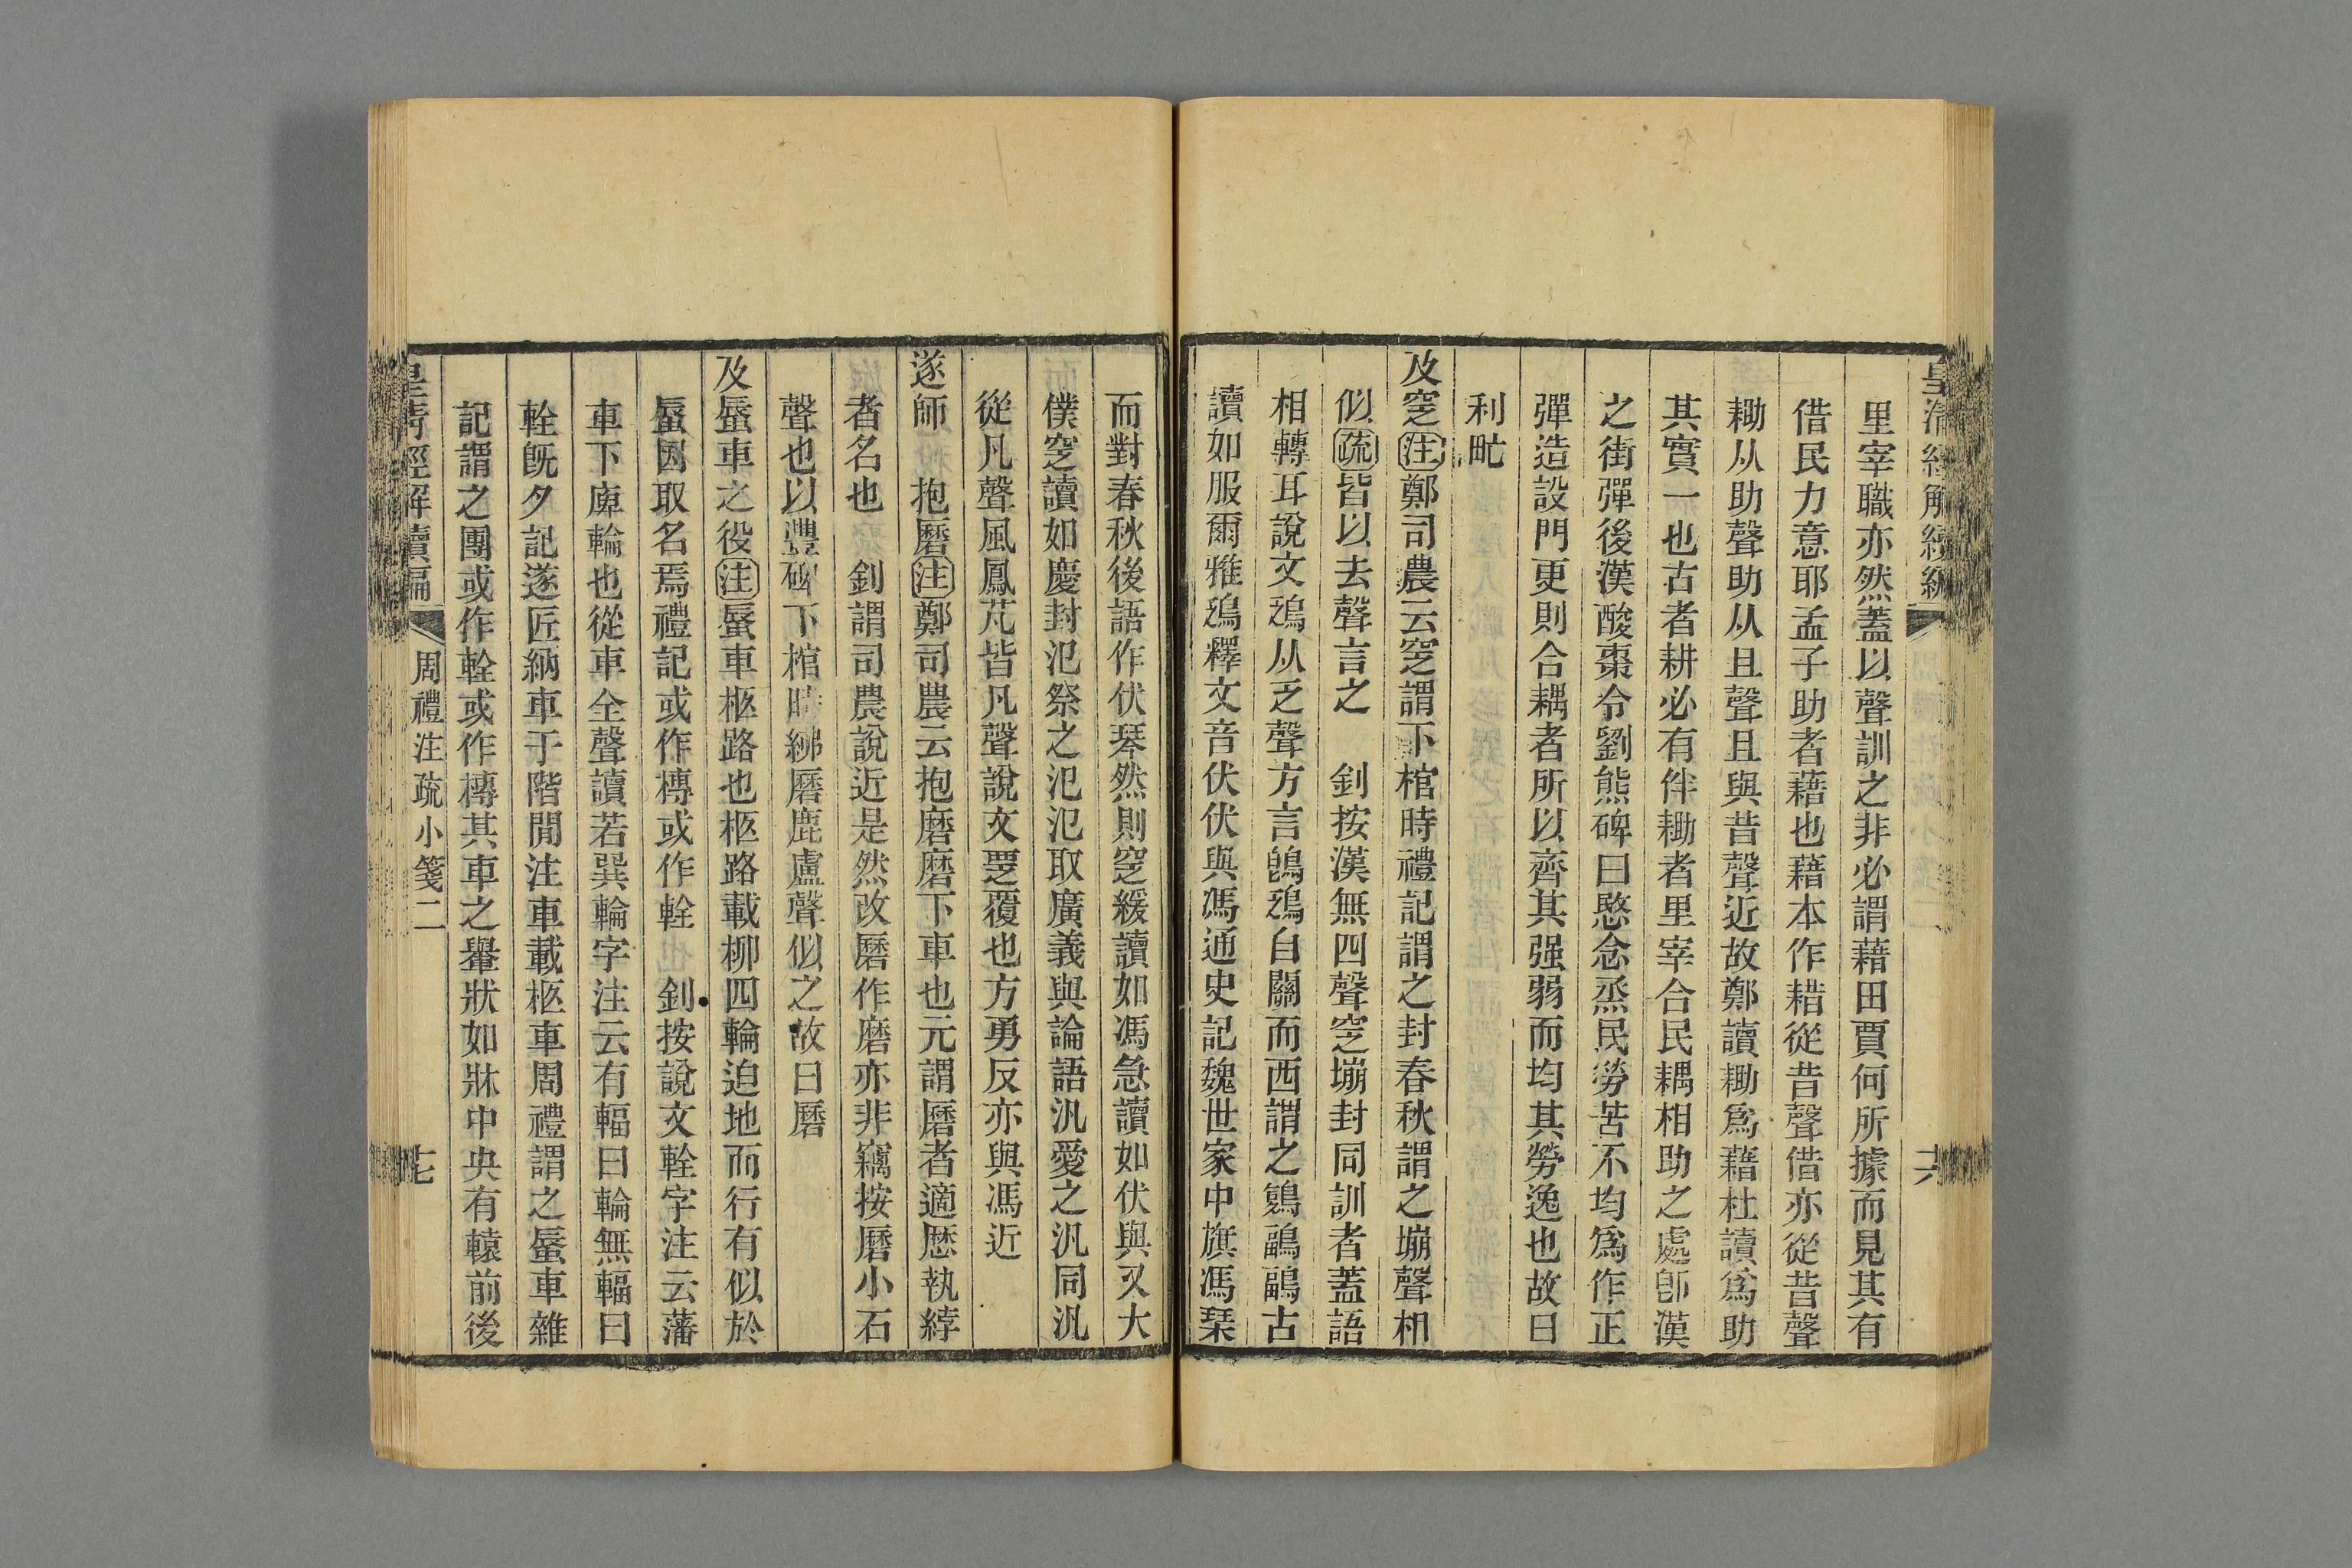 皇清經解續編
十六
里宰職亦然蓋以聲訓之非必謂藉田賈何所據而見其有
借民力意耶孟子助者藉也藉本作耤從昔聲借亦從昔聲
耡从助聲助从且聲且與昔聲近故鄭讀耡爲藉杜讀爲助
其實一也古者耕必有伴耡者里宰合民耦相助之處卽漢
之街彈後漢酸棗令劉熊碑曰愍念烝民勞苦不均爲作正
彈造設門更則合耦者所以齊其强弱而均其勞逸也故曰
利甿
及窆注鄭司農云窆謂下棺時禮記謂之封春秋謂之塴聲相
似疏皆以去聲言之　釗按漢無四聲窆塴封同訓者蓋語
相轉耳說文鴔从乏聲方言鴔自關而西謂之鶝古
讀如服爾雅鴔釋文音伏伏與馮通史記魏世家中旗馮琹
而對春秋後語作伏琴然則窆緩讀如馮急讀如伏與又大
僕窆讀如慶封氾祭之氾氾取廣義與論語汎愛之汎同汎
從凡聲風鳳芃皆凡聲說文覂覆也方勇反亦與馮近
遂師　抱磿注鄭司農云抱磨磨下車也元謂磿者適厯執綍
者名也　釗謂司農說近是然改磿作磨亦非竊按磿小石
聲也以豐碑下棺時綍磿鹿盧聲似之故曰磿
及蜃車之役注蜃車柩路也柩路載柳四輪迫地而行有似於
蜃因取名焉禮記或作槫或作輇　釗按說文輇字注云藩
車下庳輪也從車全聲讀若巽輪字注云有輻曰輪無輻曰
輇旣夕記遂匠納車于階閒注車載柩車周禮謂之蜃車雜
記謂之團或作輇或作槫其車之轝狀如牀中央有轅前後
皇清經解續編
周禮注疏小箋二
十七